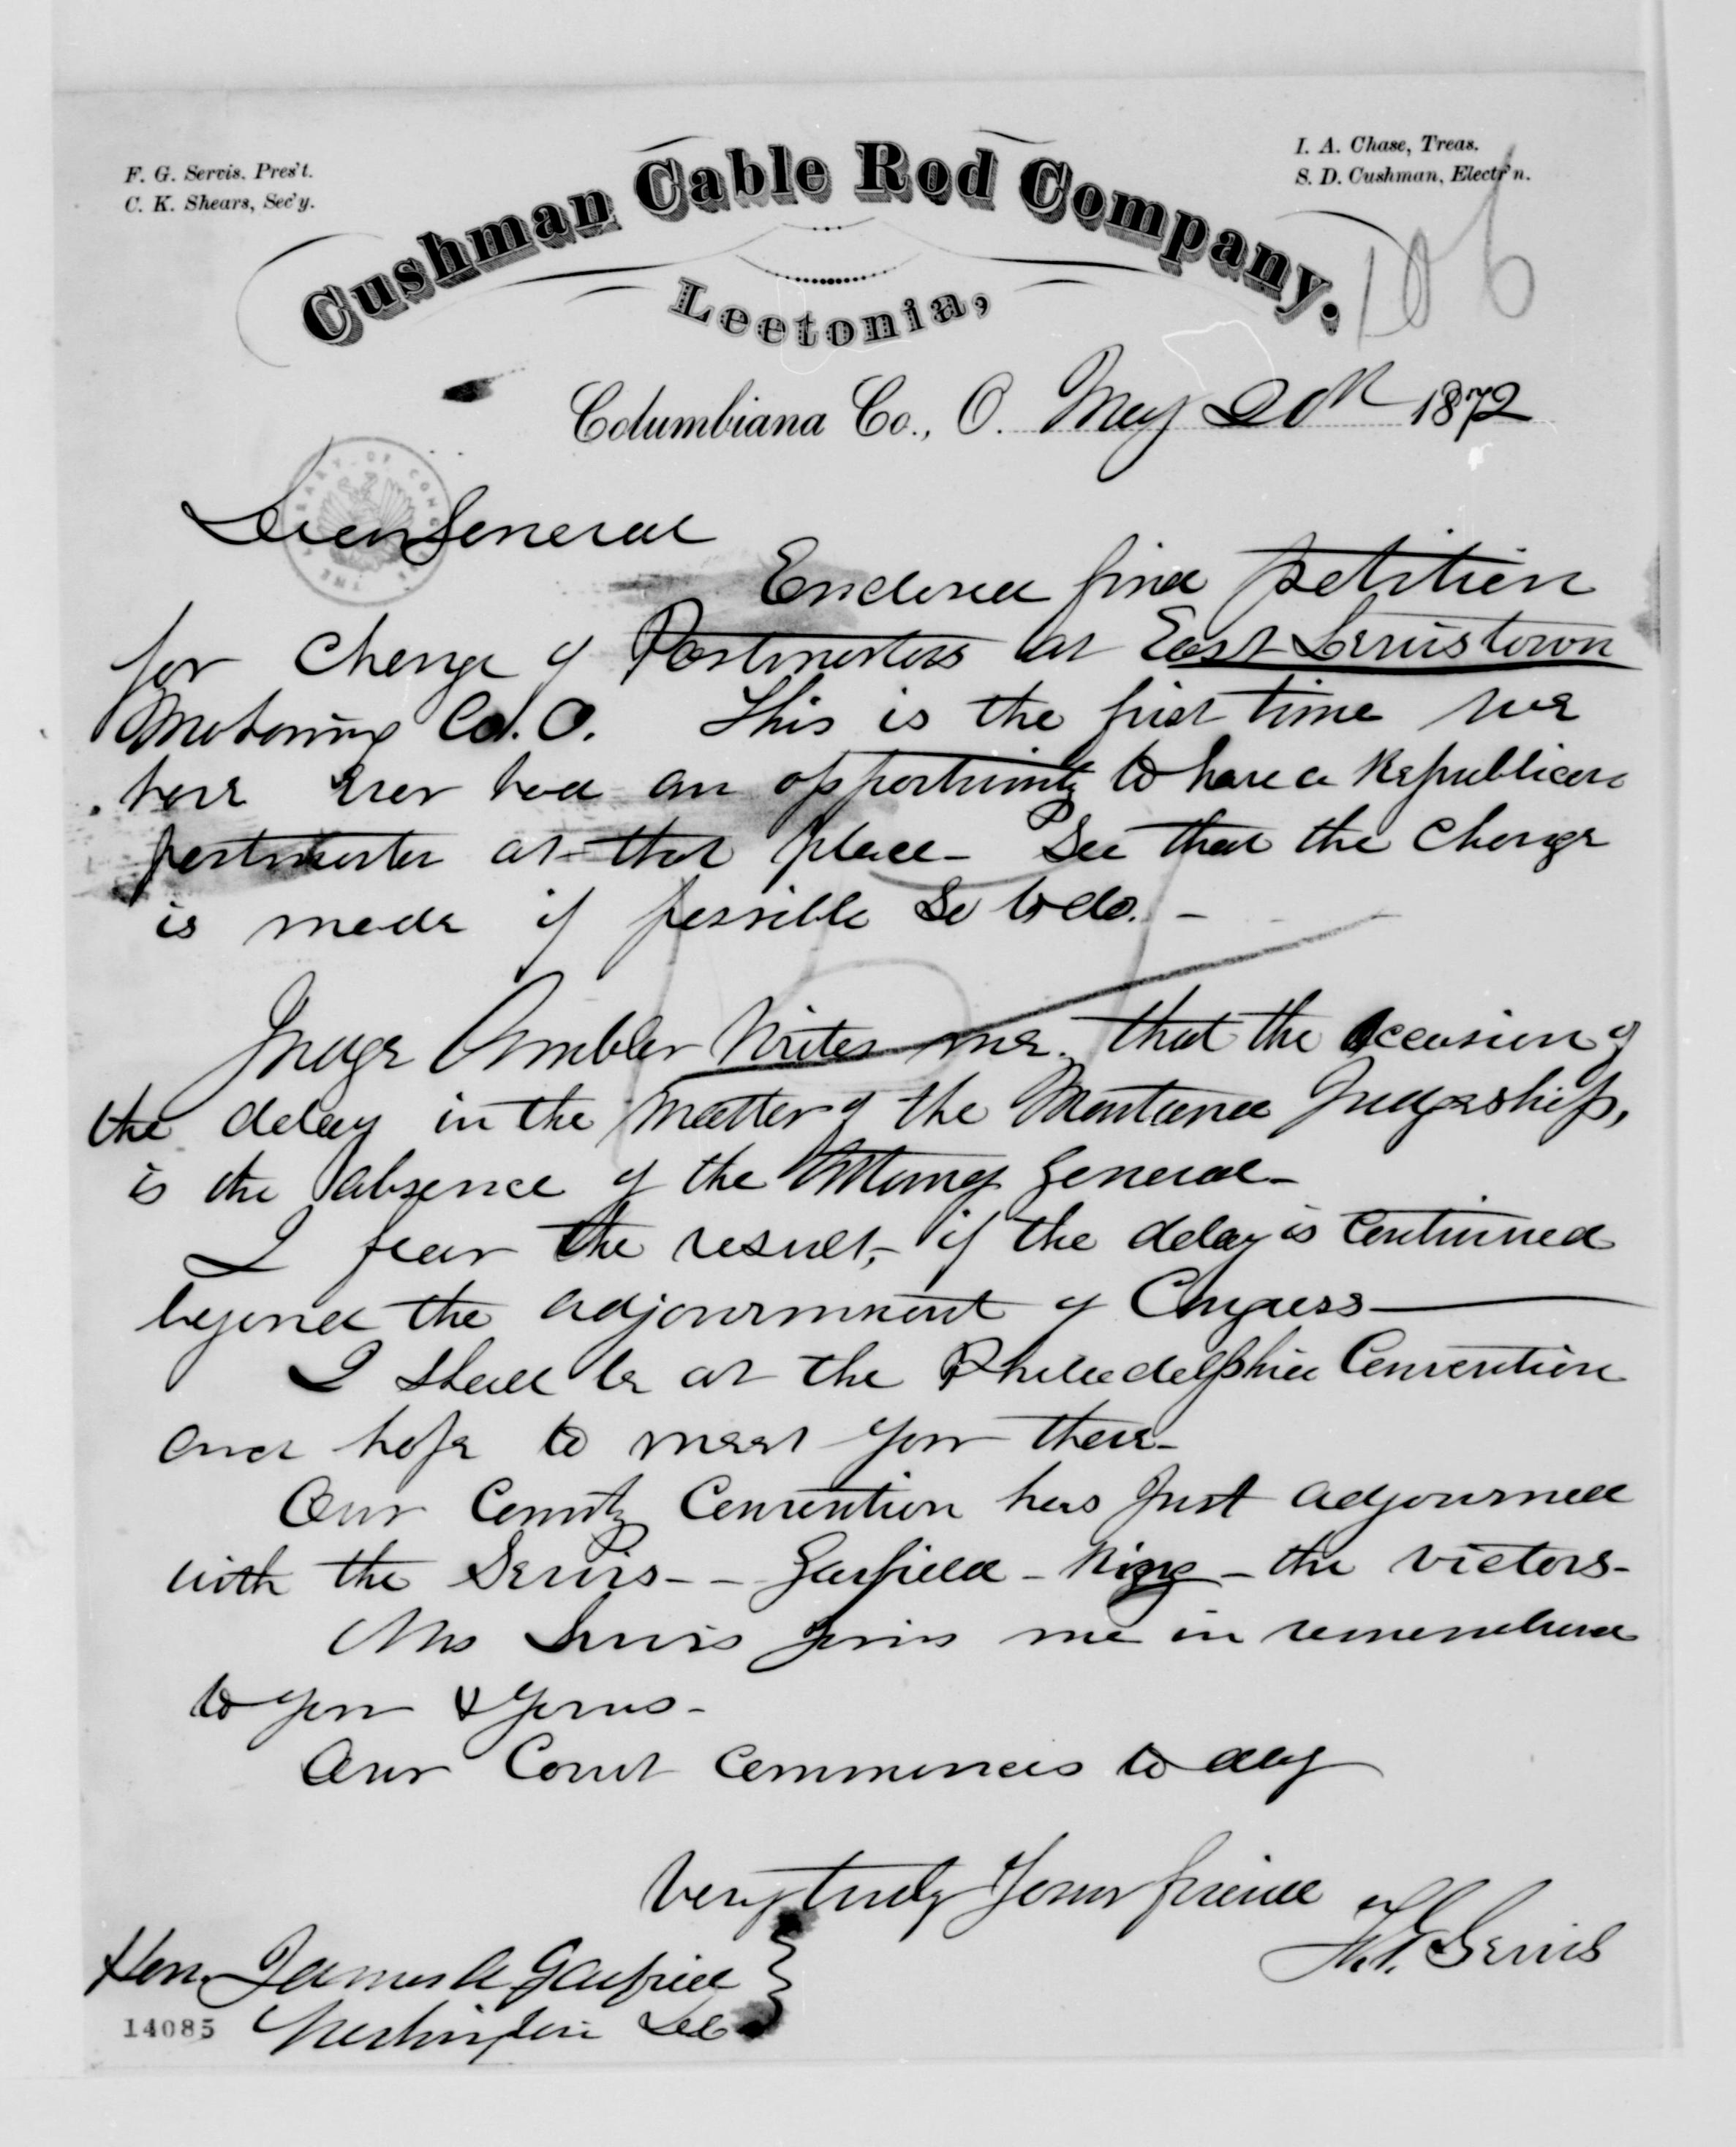 F. G. Servis. Pres't.
C. K. Shears, Sec'y.
I. A. Chase, Treas.
S. D. Cushman, Electr'n.
Cushman Cable Rod Company.
106
Leetonia,
Columbiana Co., O. May 20th 1872
Dear General
Enclosed find petition
for change of Postmasters at East Lewistown
Mahoning Co. O. This is the first time we
have ever had an opportunity to have a Republican
postmaster at that place - See that the change
is made if possible so to do. -
Judge Ambler writes me that the occasion of
the delay in the matter of the Montana Judgeship,
is the absence of the Attorney General -
I fear the result, if the delay is continued
beyond the adjournment of Congress
I shall be at the Philadelphia Convention
and hope to meet you there -
Our County Convention has just adjourned
with the Servis - - Garfield - Ring - the victors -
Mrs Servis joins me in remembrance
to you & yours -
Our Court commences to day
Very truly Your friend
F. G. Servis
Hon. James A Garfield
Washington DC
14085